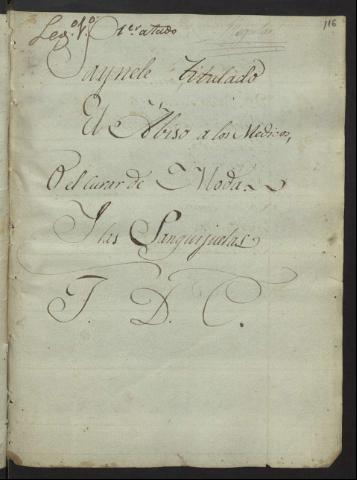 Leg.º 1.º 1.er atado 116
Saynete titulado
El Abiso a los Medicos,
O el curar de Moda
Y las Sanguijuelas
J. D. C.